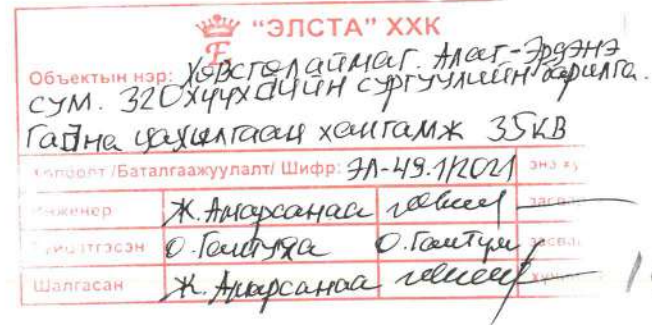 "ЭЛСТА" ХХК
Объектын нэр: Хөвсгөл аймаг. Алаг-Эрдэнэ
сум. 320 хүүхдийн сургуулийн барилга.
Гадна цахилгаан хангамж 35кВ
/Баталгаажуулалт/ Шифр: ЭЛ-49.1/2021
Инженер Ж. Амарсанаа
О. Гантулга О. Гантул
Шалгасан Ж. Амарсанаа